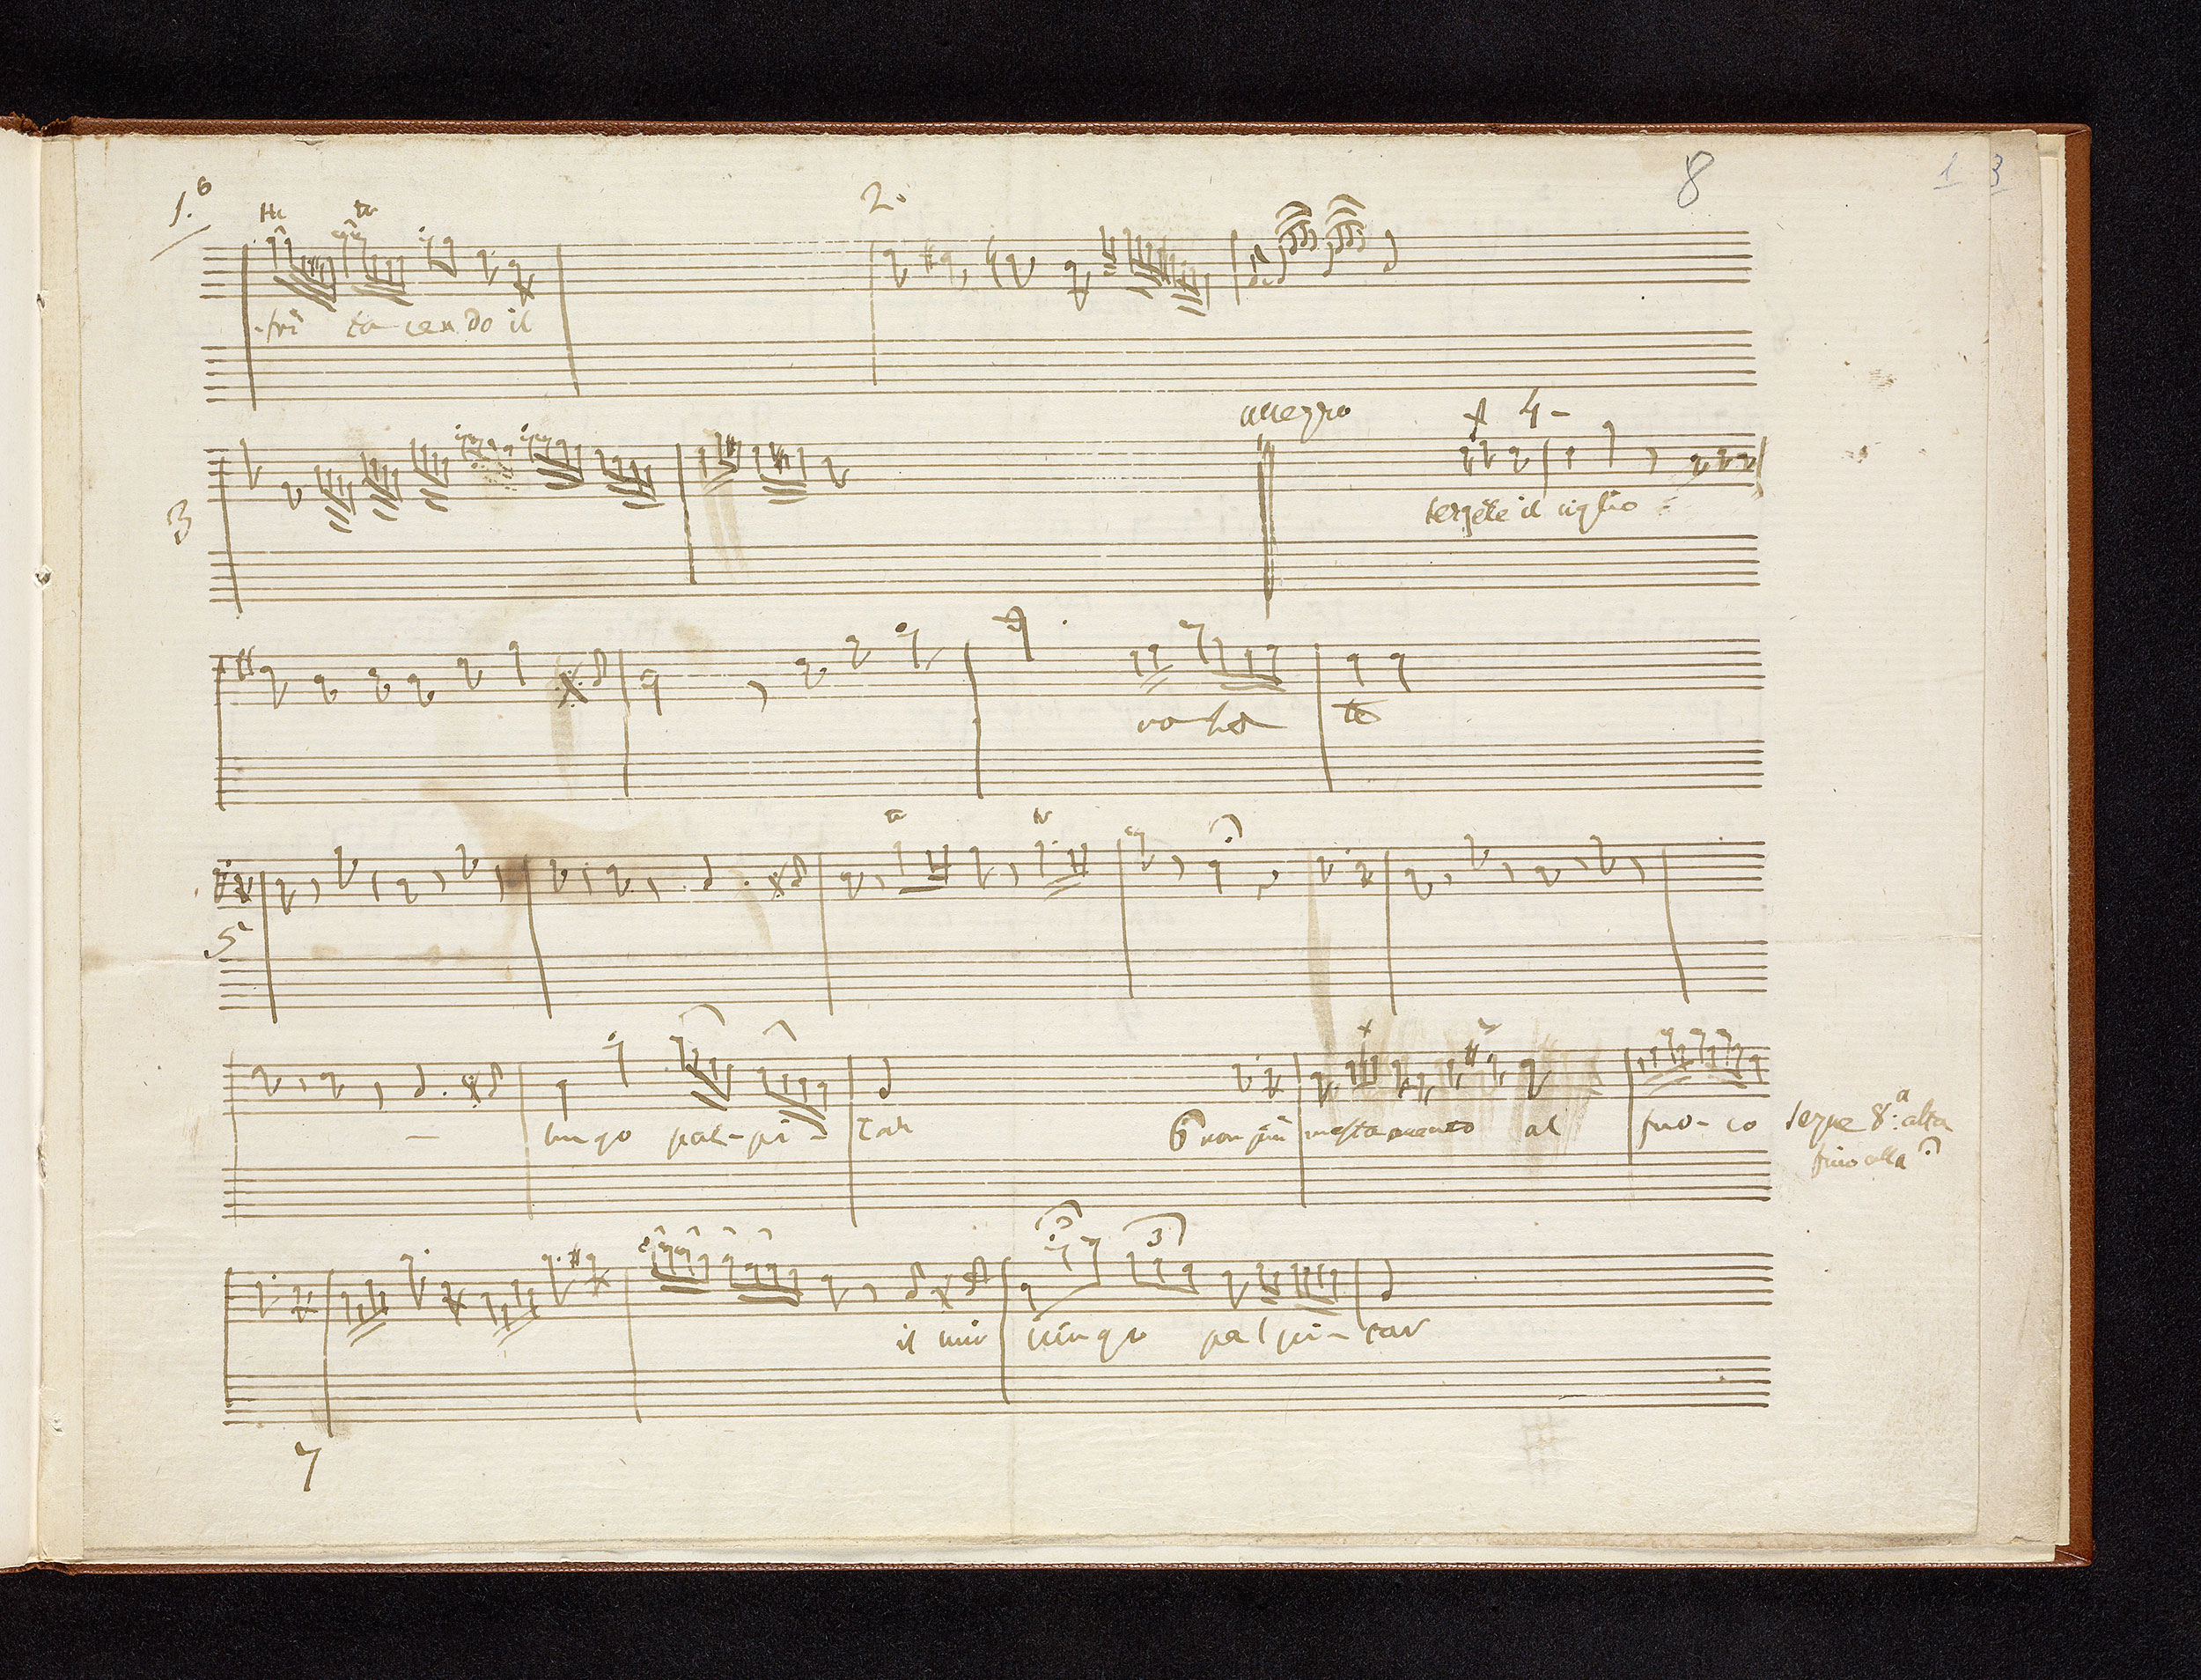 8 1 3
1.º 2.
tr tr
-frì ta-cendo il
allegro 4-
3
tergete il ciglio =
vo-lta te
tr tr
5ª
lungo pal-pi-tar 6 non più mesta accanto al fuo-co segue 8.ª alta
fino alla
3 3
il mio lungo palpi-tar
7